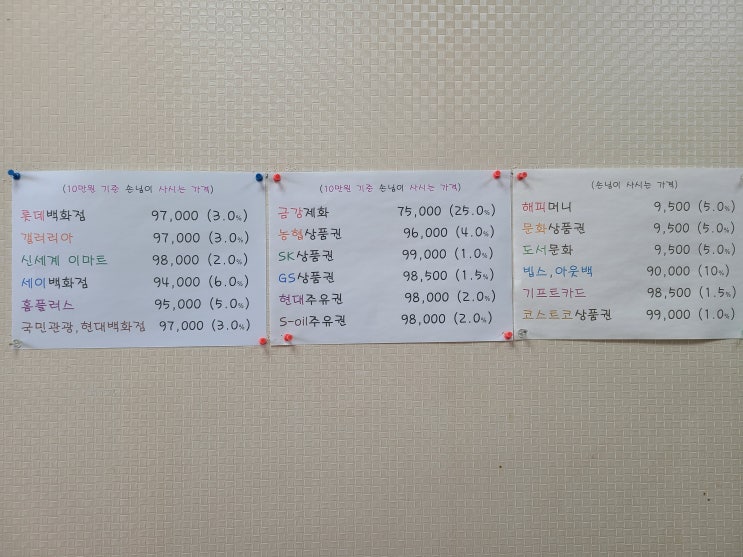 (10만원 기준 손님이 사시는 가격)
롯데백화점 97,000 (3.0%)
갤러리아 97,000 (3.0%)
신세계 이마트 98,000 (2.0%)
세이백화점 94,000 (6.0%)
홈플러스 95,000 (5.0%)
국민관광,현대백화점 97,000 (3.0%)
(10만원 기준 손님이 사시는 가격)
금강제화 75,000 (25.0%)
농협상품권 96,000 (4.0%)
SK상품권 99,000 (1.0%)
GS상품권 98,500 (1.5%)
현대주유권 98,000 (2.0%)
S-oil주유권 98,000 (2.0%)
(손님이 사시는 가격)
해피머니 9,500 (5.0%)
문화상품권 9,500 (5.0%)
도서문화 9,500 (5.0%)
빕스,아웃백 90,000 (10%)
기프트카드 98,500 (1.5%)
코스트코상품권 99,000 (1.0%)